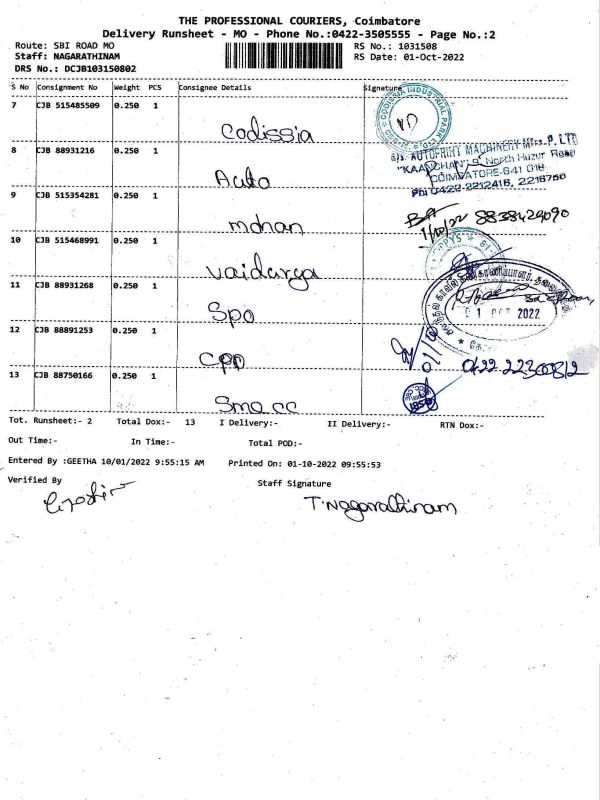 THE PROFESSIONAL COURIERS, Coimbatore
Delivery Runsheet - MO - Phone No.:0422-3505555 - Page No.:2
Route: SBI ROAD MO RS No.: 1031508
Staff: NAGARATHINAM RS Date: 01-Oct-2022
DRS No.: DCJB103150802
S No Consignment No Weight PCS Consignee Details Signature
7 CJB 515485509 0.250 1
Codissia
CODISSIA INDUSTRIAL PARK
8 CJB 88931216 0.250 1
AUTOPRINT MACHINERY Mfrs. P. LTD
"KAANCHAN" 9, North Huzur Road
COIMBATORE-641 018
Auto
PH: 0422-2212416, 2216750
9 CJB 515354281 0.250 1
mohan
1/10/22 8838429090
10 CJB 515468991 0.250 1
Vaidurga
11 CJB 88931268 0.250 1
Spo
01 OCT 2022
12 CJB 88891253 0.250 1
CPO
0422 2230812
13 CJB 88750166 0.250 1
Tot. Runsheet:- 2 Total Dox:- 13 I Delivery:- II Delivery:- RTN Dox:-
Out Time:- In Time:- Total POD:-
Entered By :GEETHA 10/01/2022 9:55:15 AM Printed On: 01-10-2022 09:55:53
Verified By Staff Signature
T.Nagarathinam